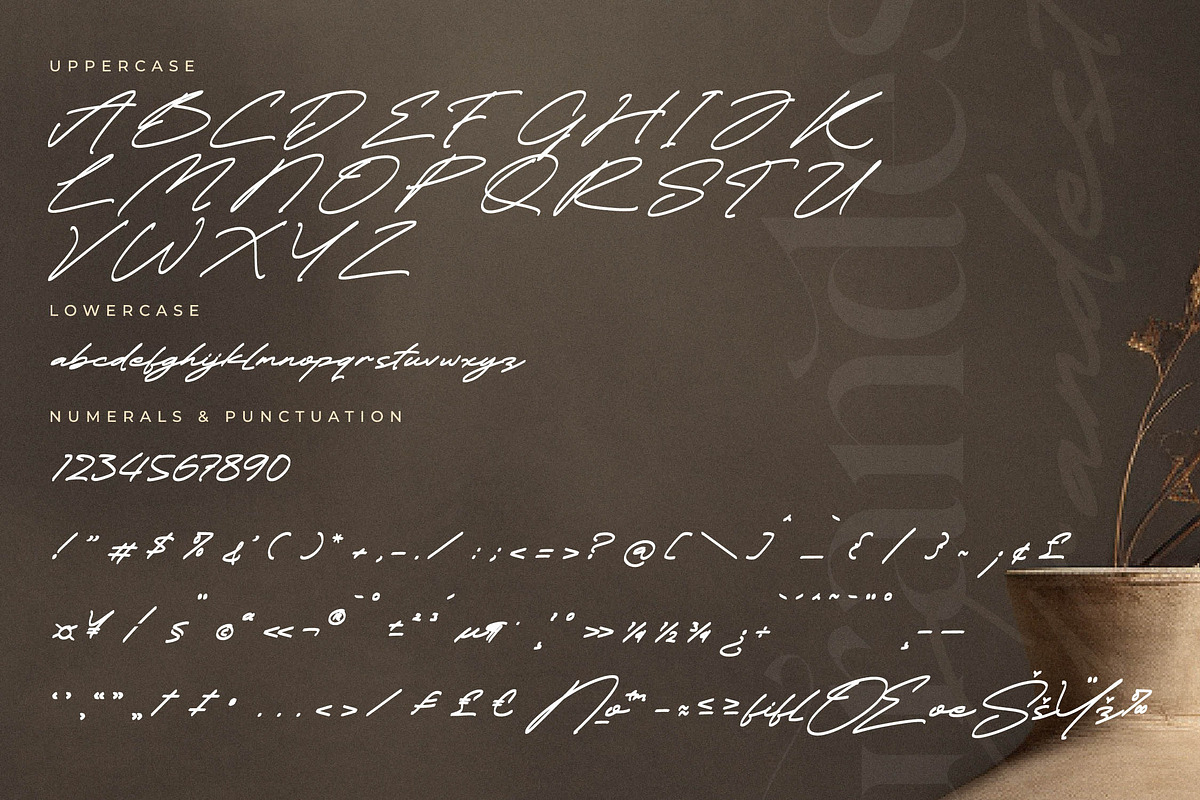 UPPERCASE
ABCDEFGHIJK
LMNOPQRSTU
VWXYZ
LOWERCASE
abcdefghijklmnopqrstuvwxyz
NUMERALS & PUNCTUATION
1234567890
! " # $ % & ' ( ) * + , - . / : ; < = > ? @ [ \ ] ^ _ ` { / } ~ ¡ ¢ £
¤ ¥ ¦ § ¨ © ª « ¬ ® ¯ ° ± ² ³ ´ µ ¶ · ¸ ¹ º » ¼ ½ ¾ ¿ ÷
‘ ’ ‚ “ ” „ † ‡ • . . . < > / ₣ ₤ € № ™ − ≈ ≤ ≥ fi fl Œ œ Š š Ÿ ž ‰